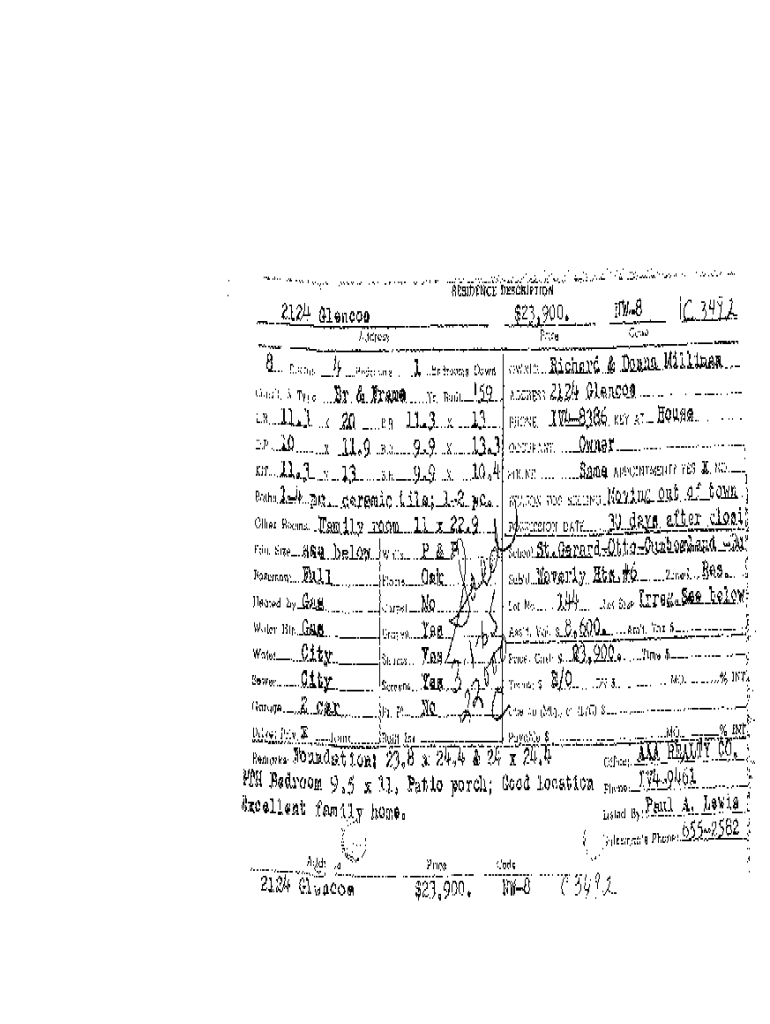 RESIDENCE DESCRIPTION
2124 Glencoe $23,900. NW-8 C 3492
Address Price Code
8 Rooms 4 Bedrooms 1 Bedrooms Down
Const. & Type Br & Frame Yr. Built '59
L.R. 11.1 x 20 B.R. 11.3 x 13
D.R. 10 x 11.9 B.R. 9.9 x 13.3
KIT. 11.3 x 13 B.R. 9.9 x 10.4
Baths 1-4 pc. ceramic tile; 1-2 pc.
Other Rooms Family room 11 x 22.9
Fdn. Size see below Walls P & P
Basement Full Floors Oak
Heated by Gas Carpet No
Water Htr. Gas Drapes Yes
Water City Storms Yes
Sewer City Screens Yes
Garage 2 car No
Drive: Priv. X Joint
OWNER Richard & Donna Milliman
ADDRESS 2124 Glencoe
PHONE IV4-8386 KEY AT House
OCCUPANT Owner
PHONE Same APPOINTMENT? YES X NO
REASON FOR SELLING Moving out of town
POSSESSION DATE 30 days after closi
School St.Gerard-Otto-Cumberland
Subd. Waverly Hts.#6 Zoned Res.
Lot No. 144 Lot Size Irreg.See below
Ass'd. Val. $ 8,600. Ann'l. Tax $
Price: Cash $ 23,900. Time $
Terms: $ E/O DN $ MO. % INT
Payable $ MO. % INT
Remarks: Foundation: 23.8 x 24.4 & 24 x 24.4
5TH Bedroom 9.5 x 11, Patio porch; Good location
Excellent family home.
Office: AAA REALTY CO.
Phone: IV4-9461
Listed By: Paul A. Lewis
Salesman's Phone: 655-2582
Price Code
2124 Glencoe $23,900. NW-8 C 3492